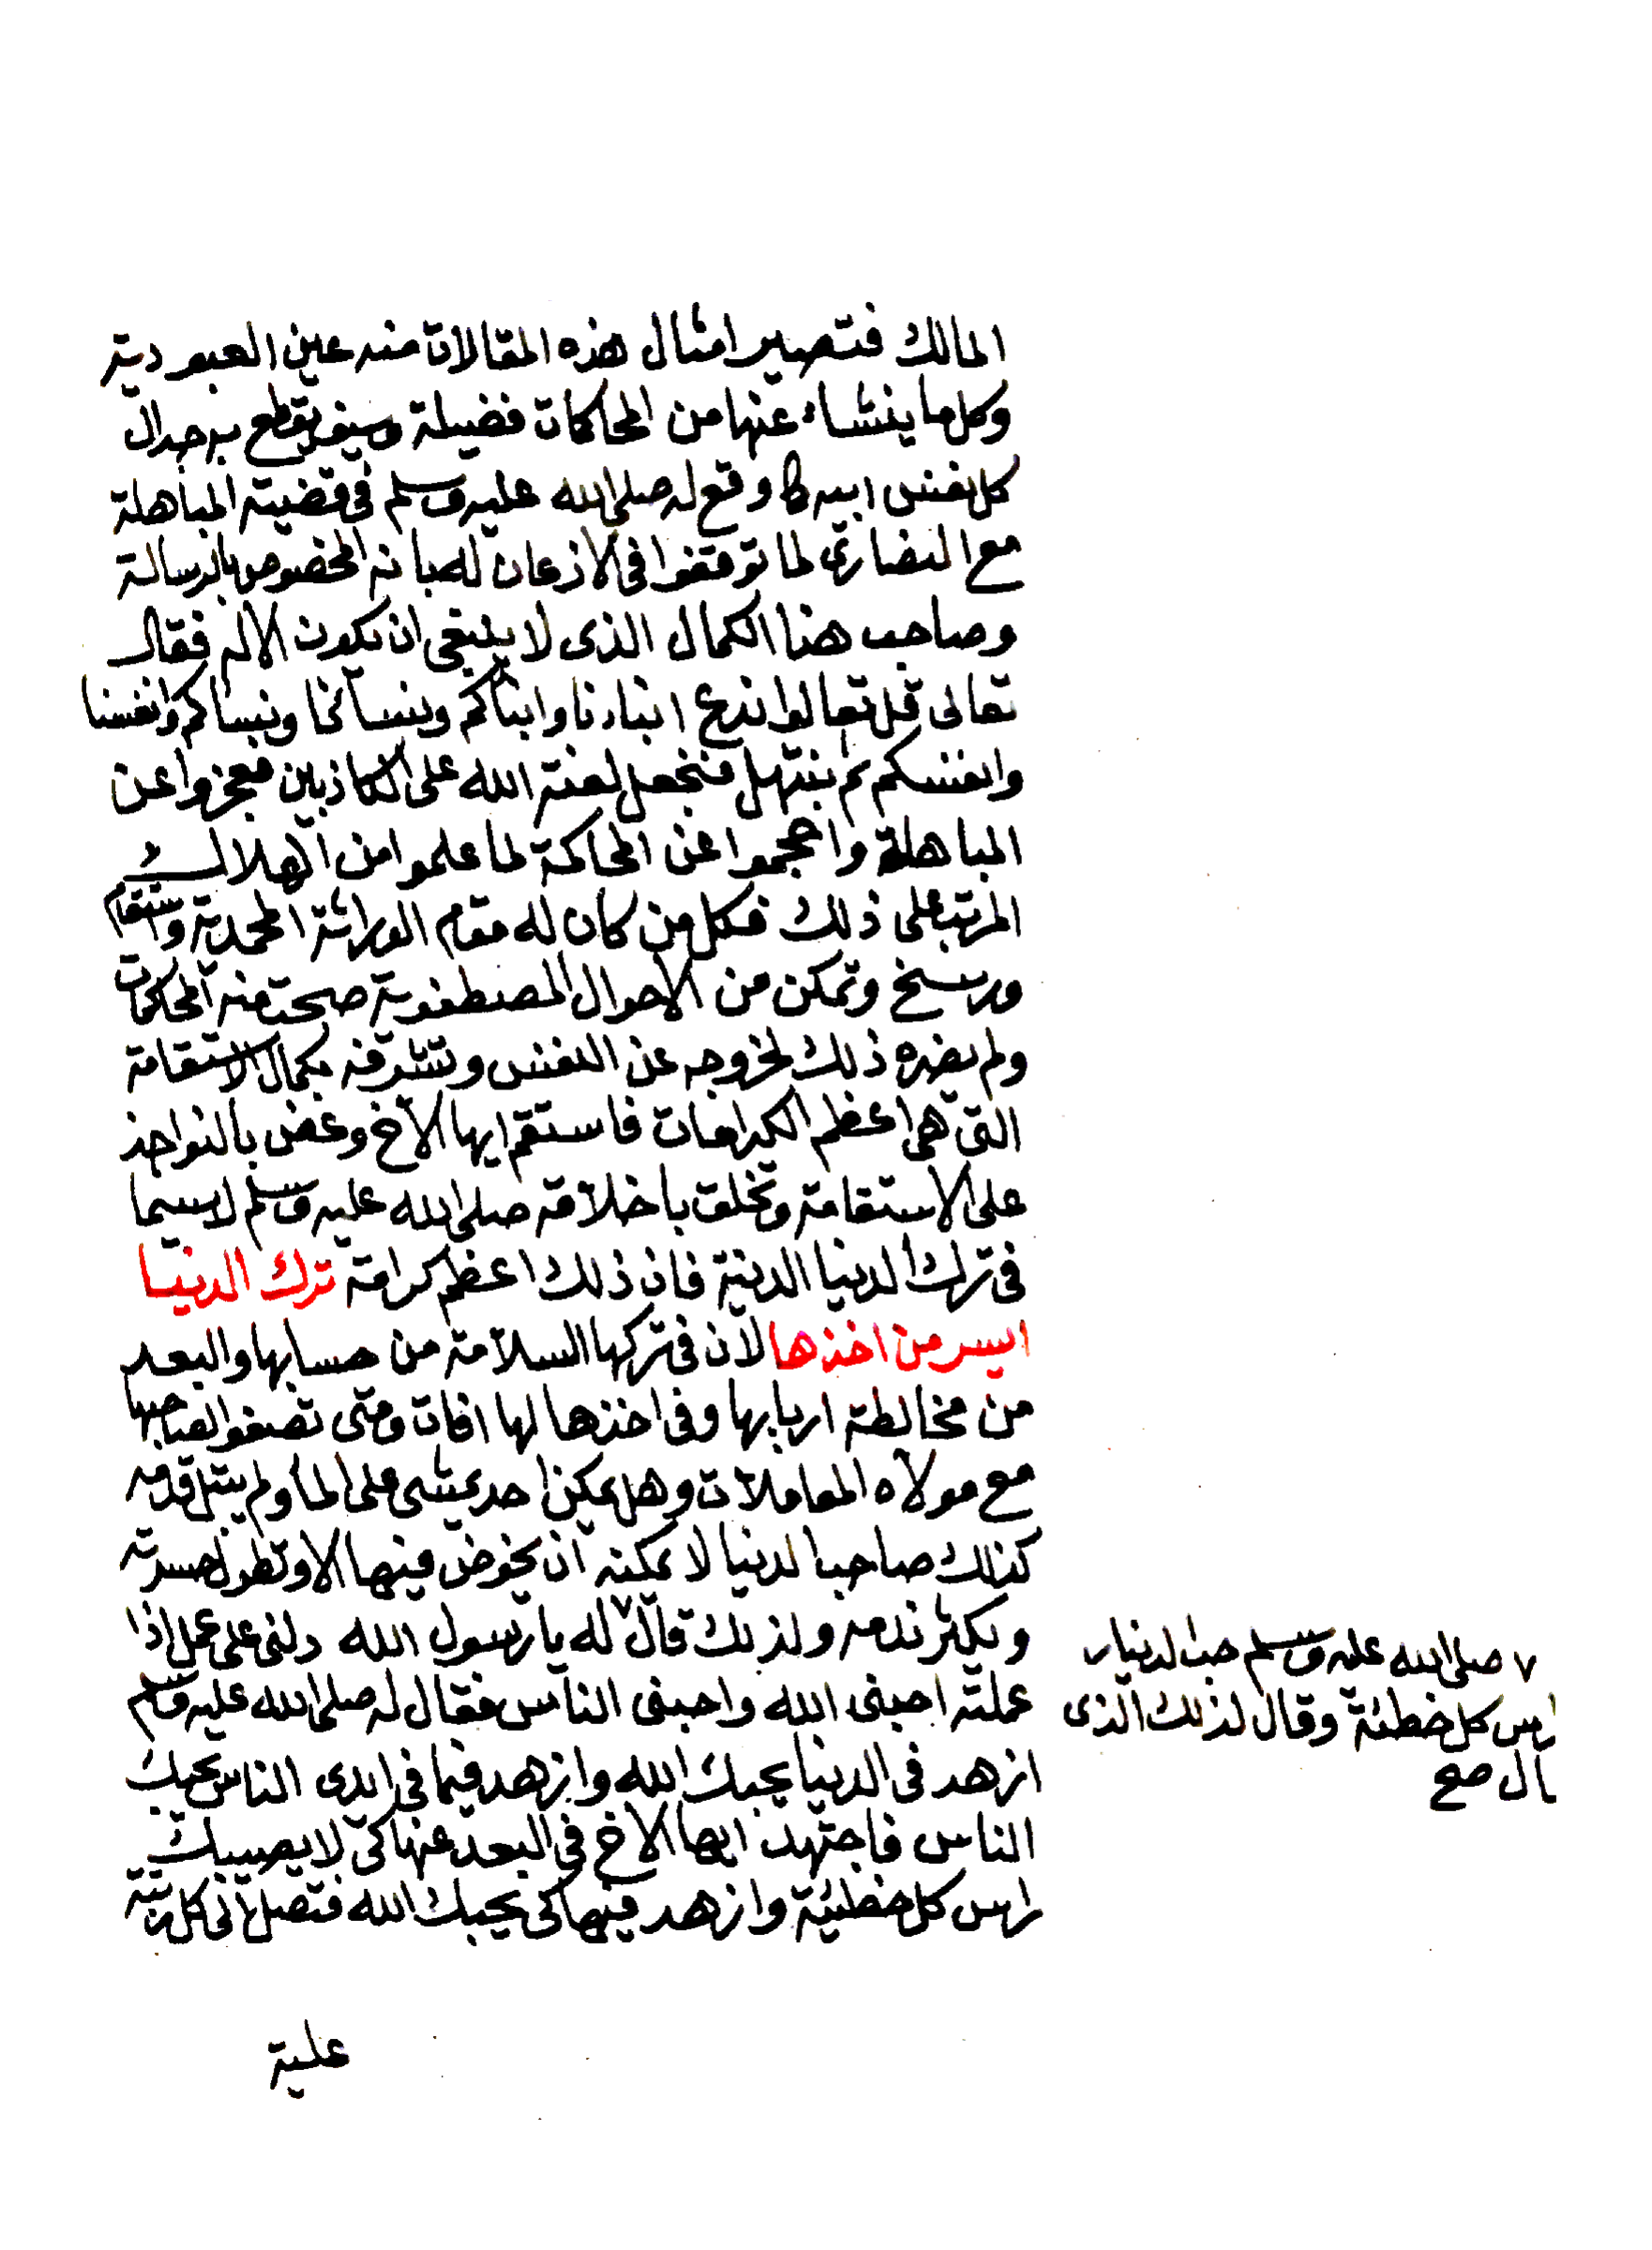 المالك فتصير امثال هذه المقالات منه عين العبودية
وكل ما ينشاء عنها من المحاكات فضيلة وسيف يقطع به جدال
كل نفس ابيه كما وقع له صلى الله عليه وسلم في قضية المباهلة
مع النصارى لما توقفوا في الاذعان له بانه المخصوص بالرسالة
وصاحب هذا الكمال الذى لا ينبغى ان يكون الا له فقال
تعالى قل تعالوا ندع ابناءنا وابناكم ونسائنا ونساكم وانفسنا
وانفسكم ثم نبتهل فنجعل لعنة الله على الكاذبين فعجزوا عن
المباهلة واحجموا عن المحاكمة لما علموا من الهلاك
المرتب على ذلك فكل من كان له مقام الوراثة المحمدية واستقام
ورسخ وتمكن من الاحوال المصطفوية صحت منه المحاكمات
ولم يضره ذلك لخروجه عن النفس وتشرفه بكمال الاستقامة
التى هى اعظم الكرامات فاستقم ايها الاخ وعض بالنواجذ
على الاستقامة وتخلق باخلاقه صلى الله عليه وسلم لاسيما
فى ترك الدنيا الدنية فان ذلك اعظم كرامة ترك الدنيا
ايسر من اخذها لان فى تركها السلامة من حسابها والبعد
من مخالطة اربابها وفى اخذها لها افات ومتى تصفو لصاحبها
مع مولاه المعاملات وهل يمكن احد يمشى على الماء ولم يبتل قدمه
كذلك صاحب الدنيا لا يمكنه ان يخوض فيها الا وتطول حسرته
ويكثر ندمه ولذلك قال ٧ له يا رسول الله دلنى على عمل اذا
عملته احبنى الله واحبنى الناس فقال له صلى الله عليه وسلم
ازهد فى الدنيا يحبك الله وازهد فيما فى ايدى الناس يحبك
الناس فاجتهد ايها الاخ في البعد عنها كى لا يصيبك
راس كل خطيئة وازهد فيها كى يحبك الله فتصل الى كل رتبة
علية
٧ صلى الله عليه وسلم حب الدنيا ر
راس كل خطئة وقال لذلك الذى
ال صح